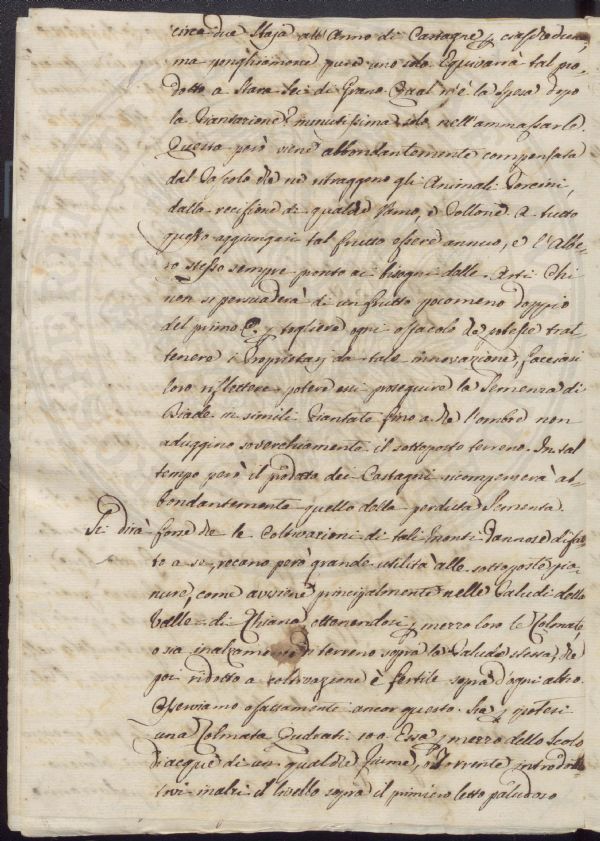 circa due Staja all'Anno di Castagne p ciascheduno,
ma ponghiamone pure uno solo. Equivarrà tal pro-
dotto a Stara sei di Grano. Qual n'è la Spesa dopo
la Piantazione? minutissima solo nell'ammassarle.
Questa però viene abbondantemente compensata
dal Pascolo che ne ritraggono gli Animali Porcini,
dalla recisione di qualche Ramo, e Pollone. A tutto
questo aggiungasi tal frutto essere annuo, e l'Albe-
ro stesso sempre pronto ai bisogni delle Arti. Chi
non si persuaderà di un frutto pocomeno doppio
del primo? E p togliere ogni ostacolo che potesse trat-
tenere i Proprietarj da tale innovazione, facciasi
loro riflettere poter essi proseguire la Semenza di
Biade in simili Piantate fino a che l'ombre non
aduggino soverchiamente il sottoposto terreno. In tal
tempo però il prodotto dei Castagni ricompenserà ab-
bondantemente quello della perduta Sementa.
Si dirà forse che le Coltivazioni di tali Monti dannose di fat-
to a se, recano però grande utilità alle sottoposte pia-
nure, come avviene principalmente nelle Paludi della
Valle di Chiana, ottenendosi p mezzo loro le Colmate,
o sia inalzamento di terreno sopra la Palude stessa, che
poi ridotto a coltivazione è fertile sopra d'ogni altro.
Osserviamo esattamente ancor questo. Sia p ipotesi
una Colmata Quadrati 100. Essa p mezzo dello Scolo
d'acque di un qualche Fiume, o Torrente introdotto
trovi inalzi il livello sopra il primiero letto paludoso